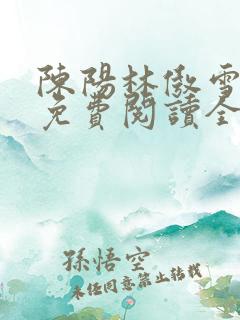 陳陽林傲雪
免費閱讀全
孫悟空
未經同意禁止轉載